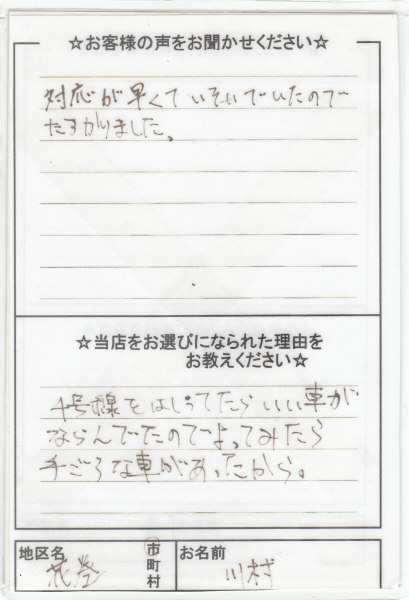 ☆お客様の声をお聞かせください☆
対応が早くていそいでいたので
たすかりました。
☆当店をお選びになられた理由を
お教えください☆
4号線をはしってたらいい車が
ならんでたのでよってみたら
手ごろな車があったから。
地区名
市
町
村
お名前
川村